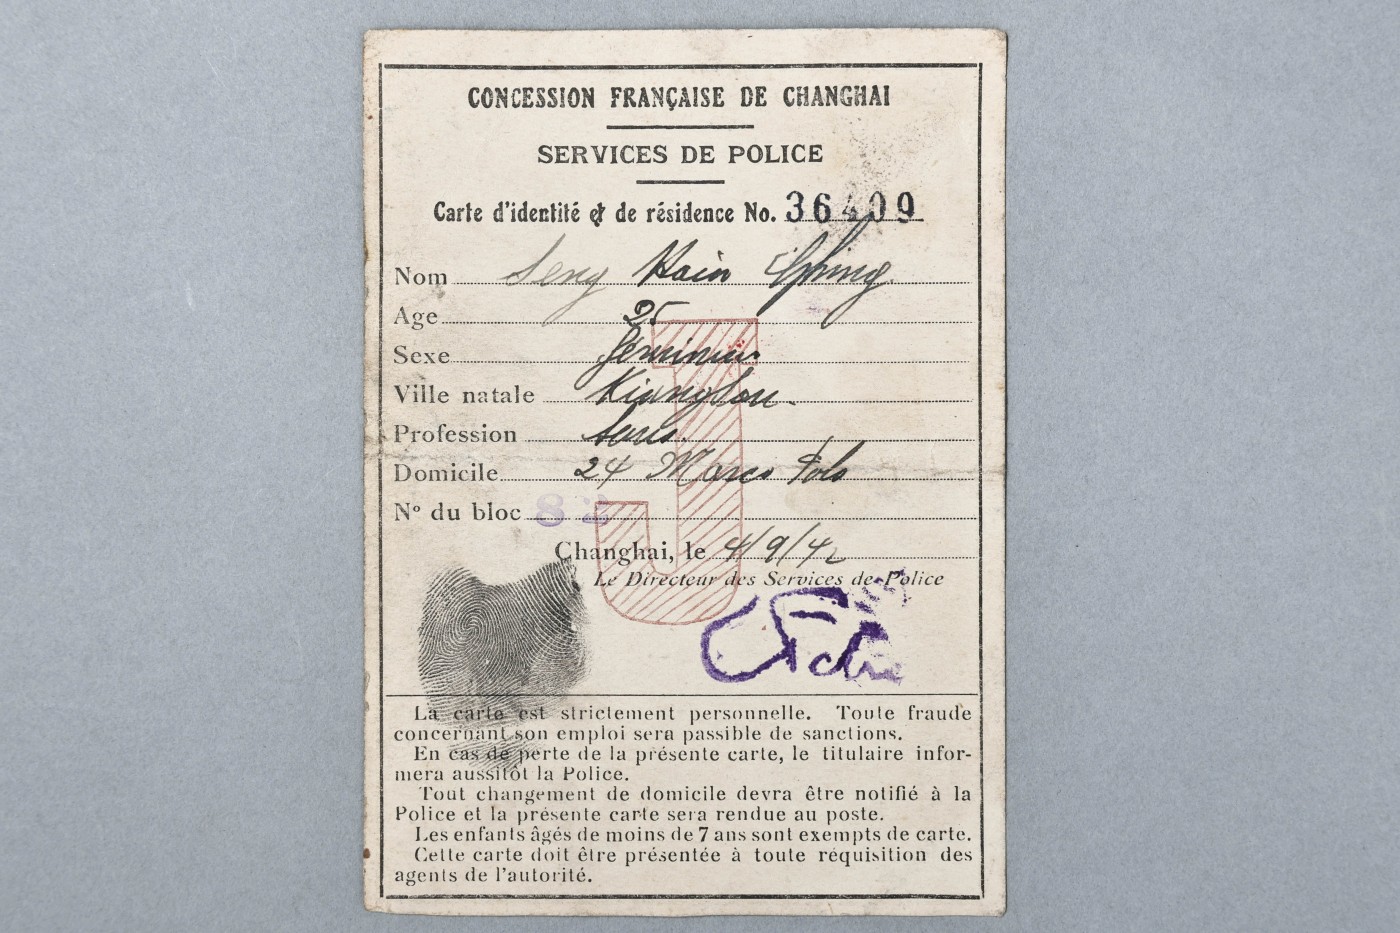 CONCESSION FRANÇAISE DE CHANGHAI
SERVICES DE POLICE
Carte d'identité et de résidence No. 36409
Nom Seng Hain
Age 25
Sexe féminin
Ville natale
Profession sans
Domicile 24 Marco Polo
Nº du bloc 82
J
Changhai, le 4/9/42
Le Directeur des Services de Police
La carte est strictement personnelle. Toute fraude
concernant son emploi sera passible de sanctions.
En cas de perte de la présente carte, le titulaire infor-
mera aussitôt la Police.
Tout changement de domicile devra être notifié à la
Police et la présente carte sera rendue au poste.
Les enfants âgés de moins de 7 ans sont exempts de carte.
Cette carte doit être présentée à toute réquisition des
agents de l'autorité.